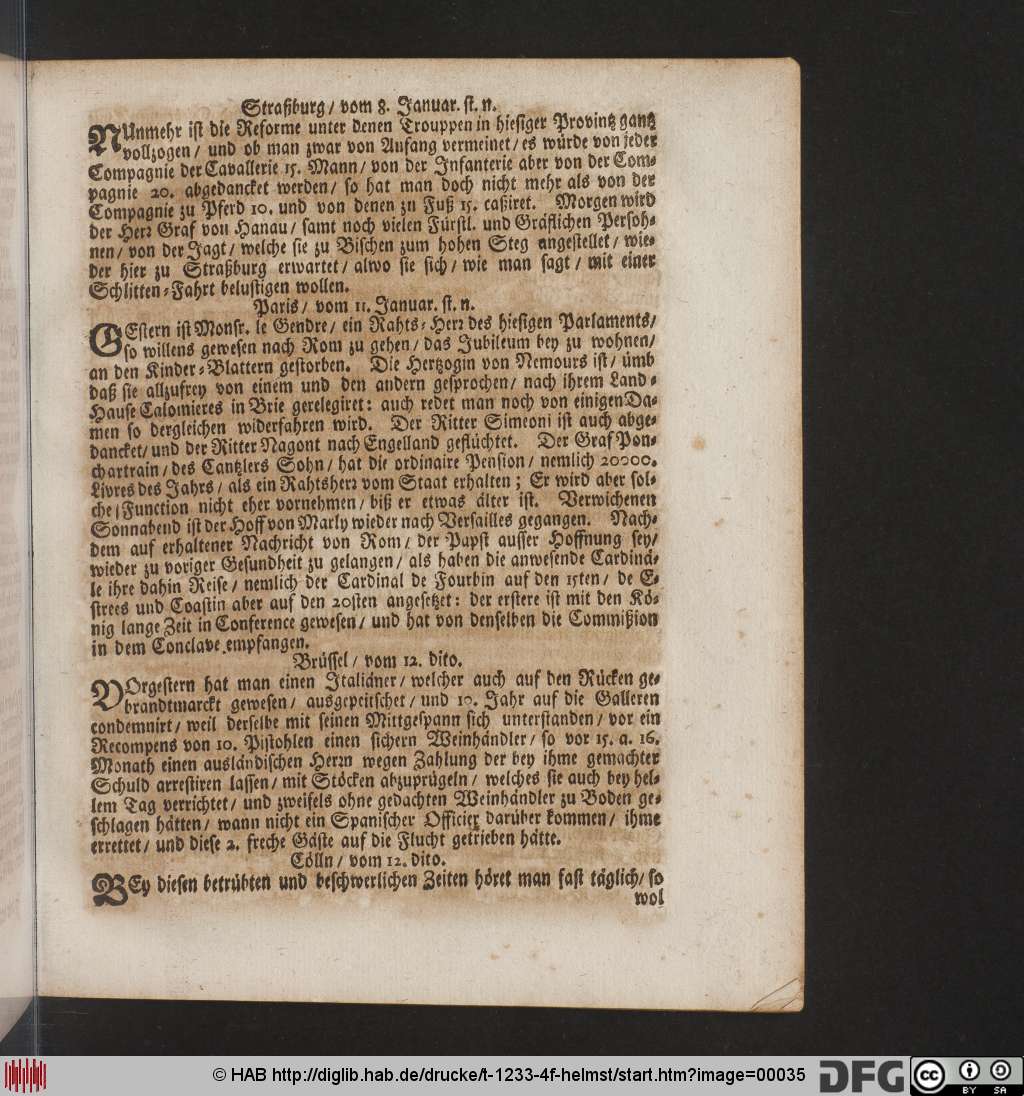 Straßburg / vom 8. Januar. st. n.
NUnmehr ist die Reforme unter denen Trouppen in hiesiger Provintz gantz
vollzogen / und ob man zwar von Anfang vermeinet / es würde von jeder
Compagnie der Cavallerie 15. Mann / von der Infanterie aber von der Com-
pagnie 20. abgedancket werden / so hat man doch nicht mehr als von der
Compagnie zu Pferd 10. und von denen zu Fuß 15. caßiret. Morgen wird
der Herr Graf von Hanau / samt noch vielen Fürstl. und Gräflichen Persoh-
nen / von der Jagt / welche sie zu Bischen zum hohen Steg angestellet / wie-
der hier zu Straßburg erwartet / alwo sie sich / wie man sagt / mit einer
Schlitten-Fahrt belustigen wollen.
Paris / vom 11. Januar. st. n.
GEstern ist Monsr. le Gendre / ein Rahts-Herr des hiesigen Parlaments /
so willens gewesen nach Rom zu gehen / das Jubileum bey zu wohnen /
an den Kinder-Blattern gestorben. Die Hertzogin von Nemours ist / ümb
daß sie allzufrey von einem und den andern gesprochen / nach ihrem Land-
Hause Calomieres in Brie gerelegiret: auch redet man noch von einigen Da-
men so dergleichen widerfahren wird. Der Ritter Simeoni ist auch abge-
dancket / und der Ritter Nagont nach Engelland geflüchtet. Der Graf Pon-
chartrain / des Cantzlers Sohn / hat die ordinaire Pension / nemlich 20000.
Livres des Jahrs / als ein Rahtsherr vom Staat erhalten; Er wird aber sol-
che Function nicht eher vornehmen / biß er etwas älter ist. Verwichenen
Sonnabend ist der Hoff von Marly wieder nach Versailles gegangen. Nach-
dem auf erhaltener Nachricht von Rom / der Papst ausser Hoffnung sey /
wieder zu voriger Gesundheit zu gelangen / als haben die anwesende Cardinä-
le ihre dahin Reise / nemlich der Cardinal de Fourbin auf den 15ten / de E-
strees und Coastin aber auf den 20sten angesetzet: der erstere ist mit den Kö-
nig lange Zeit in Conference gewesen / und hat von denselben die Commißion
in dem Conclave empfangen.
Brüssel / vom 12. dito.
VOrgestern hat man einen Italiäner / welcher auch auf den Rücken ge-
brandtmarckt gewesen / ausgepeitschet / und 10. Jahr auf die Galleren
condemnirt / weil derselbe mit seinen Mittgespann sich unterstanden / vor ein
Recompens von 10. Pistohlen einen sichern Weinhändler / so vor 15. a. 16.
Monath einen ausländischen Herrn wegen Zahlung der bey ihme gemachter
Schuld arrestiren lassen / mit Stöcken abzuprügeln / welches sie auch bey hel-
lem Tag verrichtet / und zweifels ohne gedachten Weinhändler zu Boden ge-
schlagen hätten / wann nicht ein Spanischer Officier darüber kommen / ihme
errettet / und diese 2. freche Gäste auf die Flucht getrieben hätte.
Cölln / vom 12. dito.
BEy diesen betrübten und beschwerlichen Zeiten höret man fast täglich / so
wol
© HAB http://diglib.hab.de/drucke/t-1233-4f-helmst/start.htm?image=00035
DFG
cc BY SA